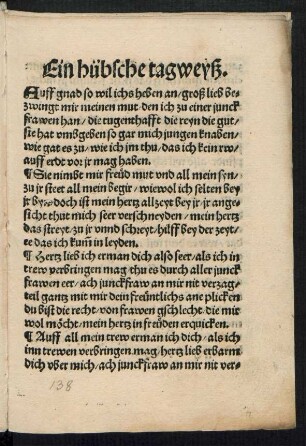 Ein hübsche tagweyß.
Auff gnad so wil ichs heben an / groß lieb be-
zwingt mir meinen mut / den ich zu einer junck
frawen han / die tugenthafft die reyn die gut /
sie hat vmbgeben so gar mich jungen knaben /
wie gat es zu / wie ich jm thu / das ich kein rw /
auff erdt vor jr mag haben.
¶ Sie nimbt mir freüd mut vnd all mein sen /
zu jr steet all mein begir / wiewol ich selten bey
jr by / doch ist mein hertz all zeyt bey jr / jr ange-
sicht thut mich seer verschneyden / mein hertz
das streyt / zu jr vnnd schreyt / hilff bey der zeyt /
ee das ich kum̄ in leyden.
¶ Hertz lieb ich erman dich also seer / als ich in
trew verbringen mag / thu es durch aller junck
frawen eer / ach junckfraw an mir nit verzag /
teil gantz mit mir dein freüntlichs ane plicken
du bist die recht / von frawen gschlecht / die mit
wol möcht / mein hertz in freüden erquicken.
¶ Auff all mein trew erman ich dich / als ich
inn trewen verbringen mag / hertz lieb erbarm
dich vber mich / ach junckfraw an mir nit ver-
138